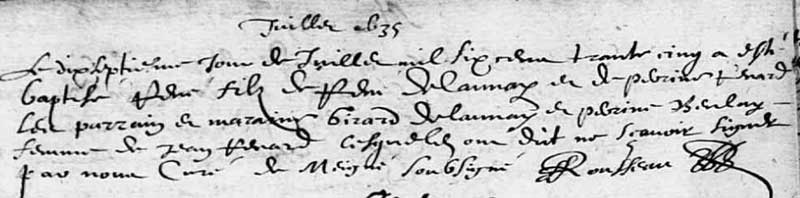 Juillet 1635
Le dixseptiesme Jour de Juillet mil six cens trante cinq a esté
baptisé René filz de René delaunay et de perrine Renard
Les parrain et maraine Girard delaunay et perrine
femme de Jean Renard Lesquelz ont dict ne sçavoir signer
par nous Curé de Meigné soubsigné Rousseau